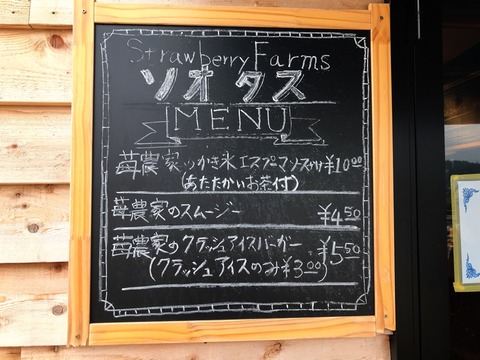 Strawberry Farms
ソオタス
MENU
苺農家のかき氷エスプーマソースがけ ¥1000
(あたたかいお茶付)
苺農家のスムージー ¥450
苺農家のクラッシュアイスバーガー ¥550
(クラッシュアイスのみ¥300)